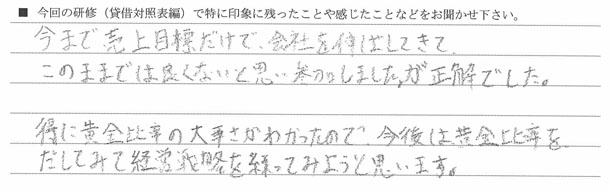 ■ 今回の研修（貸借対照表編）で特に印象に残ったことや感じたことなどをお聞かせ下さい。
今まで売上目標だけで、会社を伸ばしてきて
このままでは良くないと思い参加しました。が正解でした。
得に黄金比率の大事さがわかったので、今後は黄金比率を
だしてみて経営戦略を練ってみようと思います。